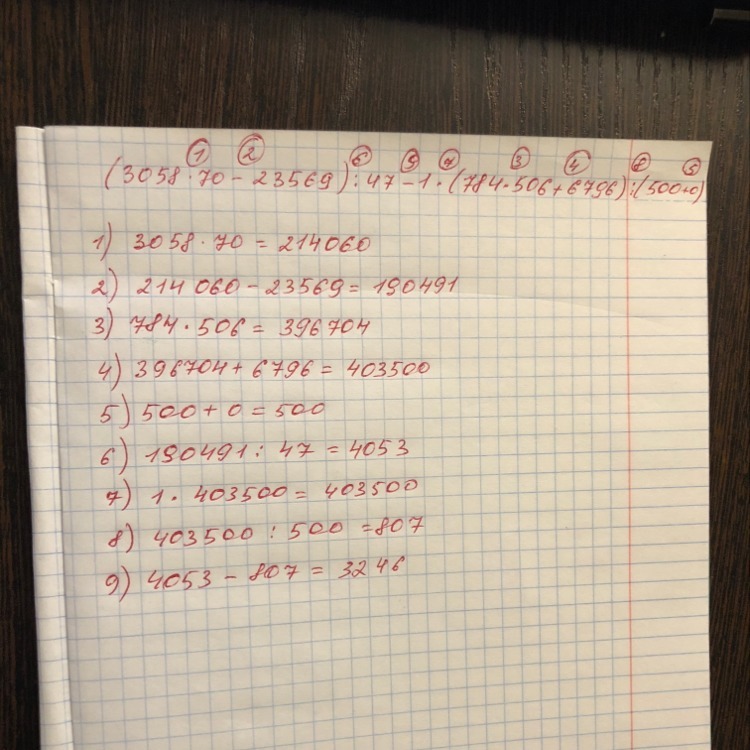 ① ② ⑥ ⑨ ⑦ ③ ④ ⑧ ⑤
(3058·70-23569):47-1·(784·506+6796):(500+0)
1) 3058·70=214060
2) 214060-23569=190491
3) 784·506=396704
4) 396704+6796=403500
5) 500+0=500
6) 190491:47=4053
7) 1·403500=403500
8) 403500:500=807
9) 4053-807=3246